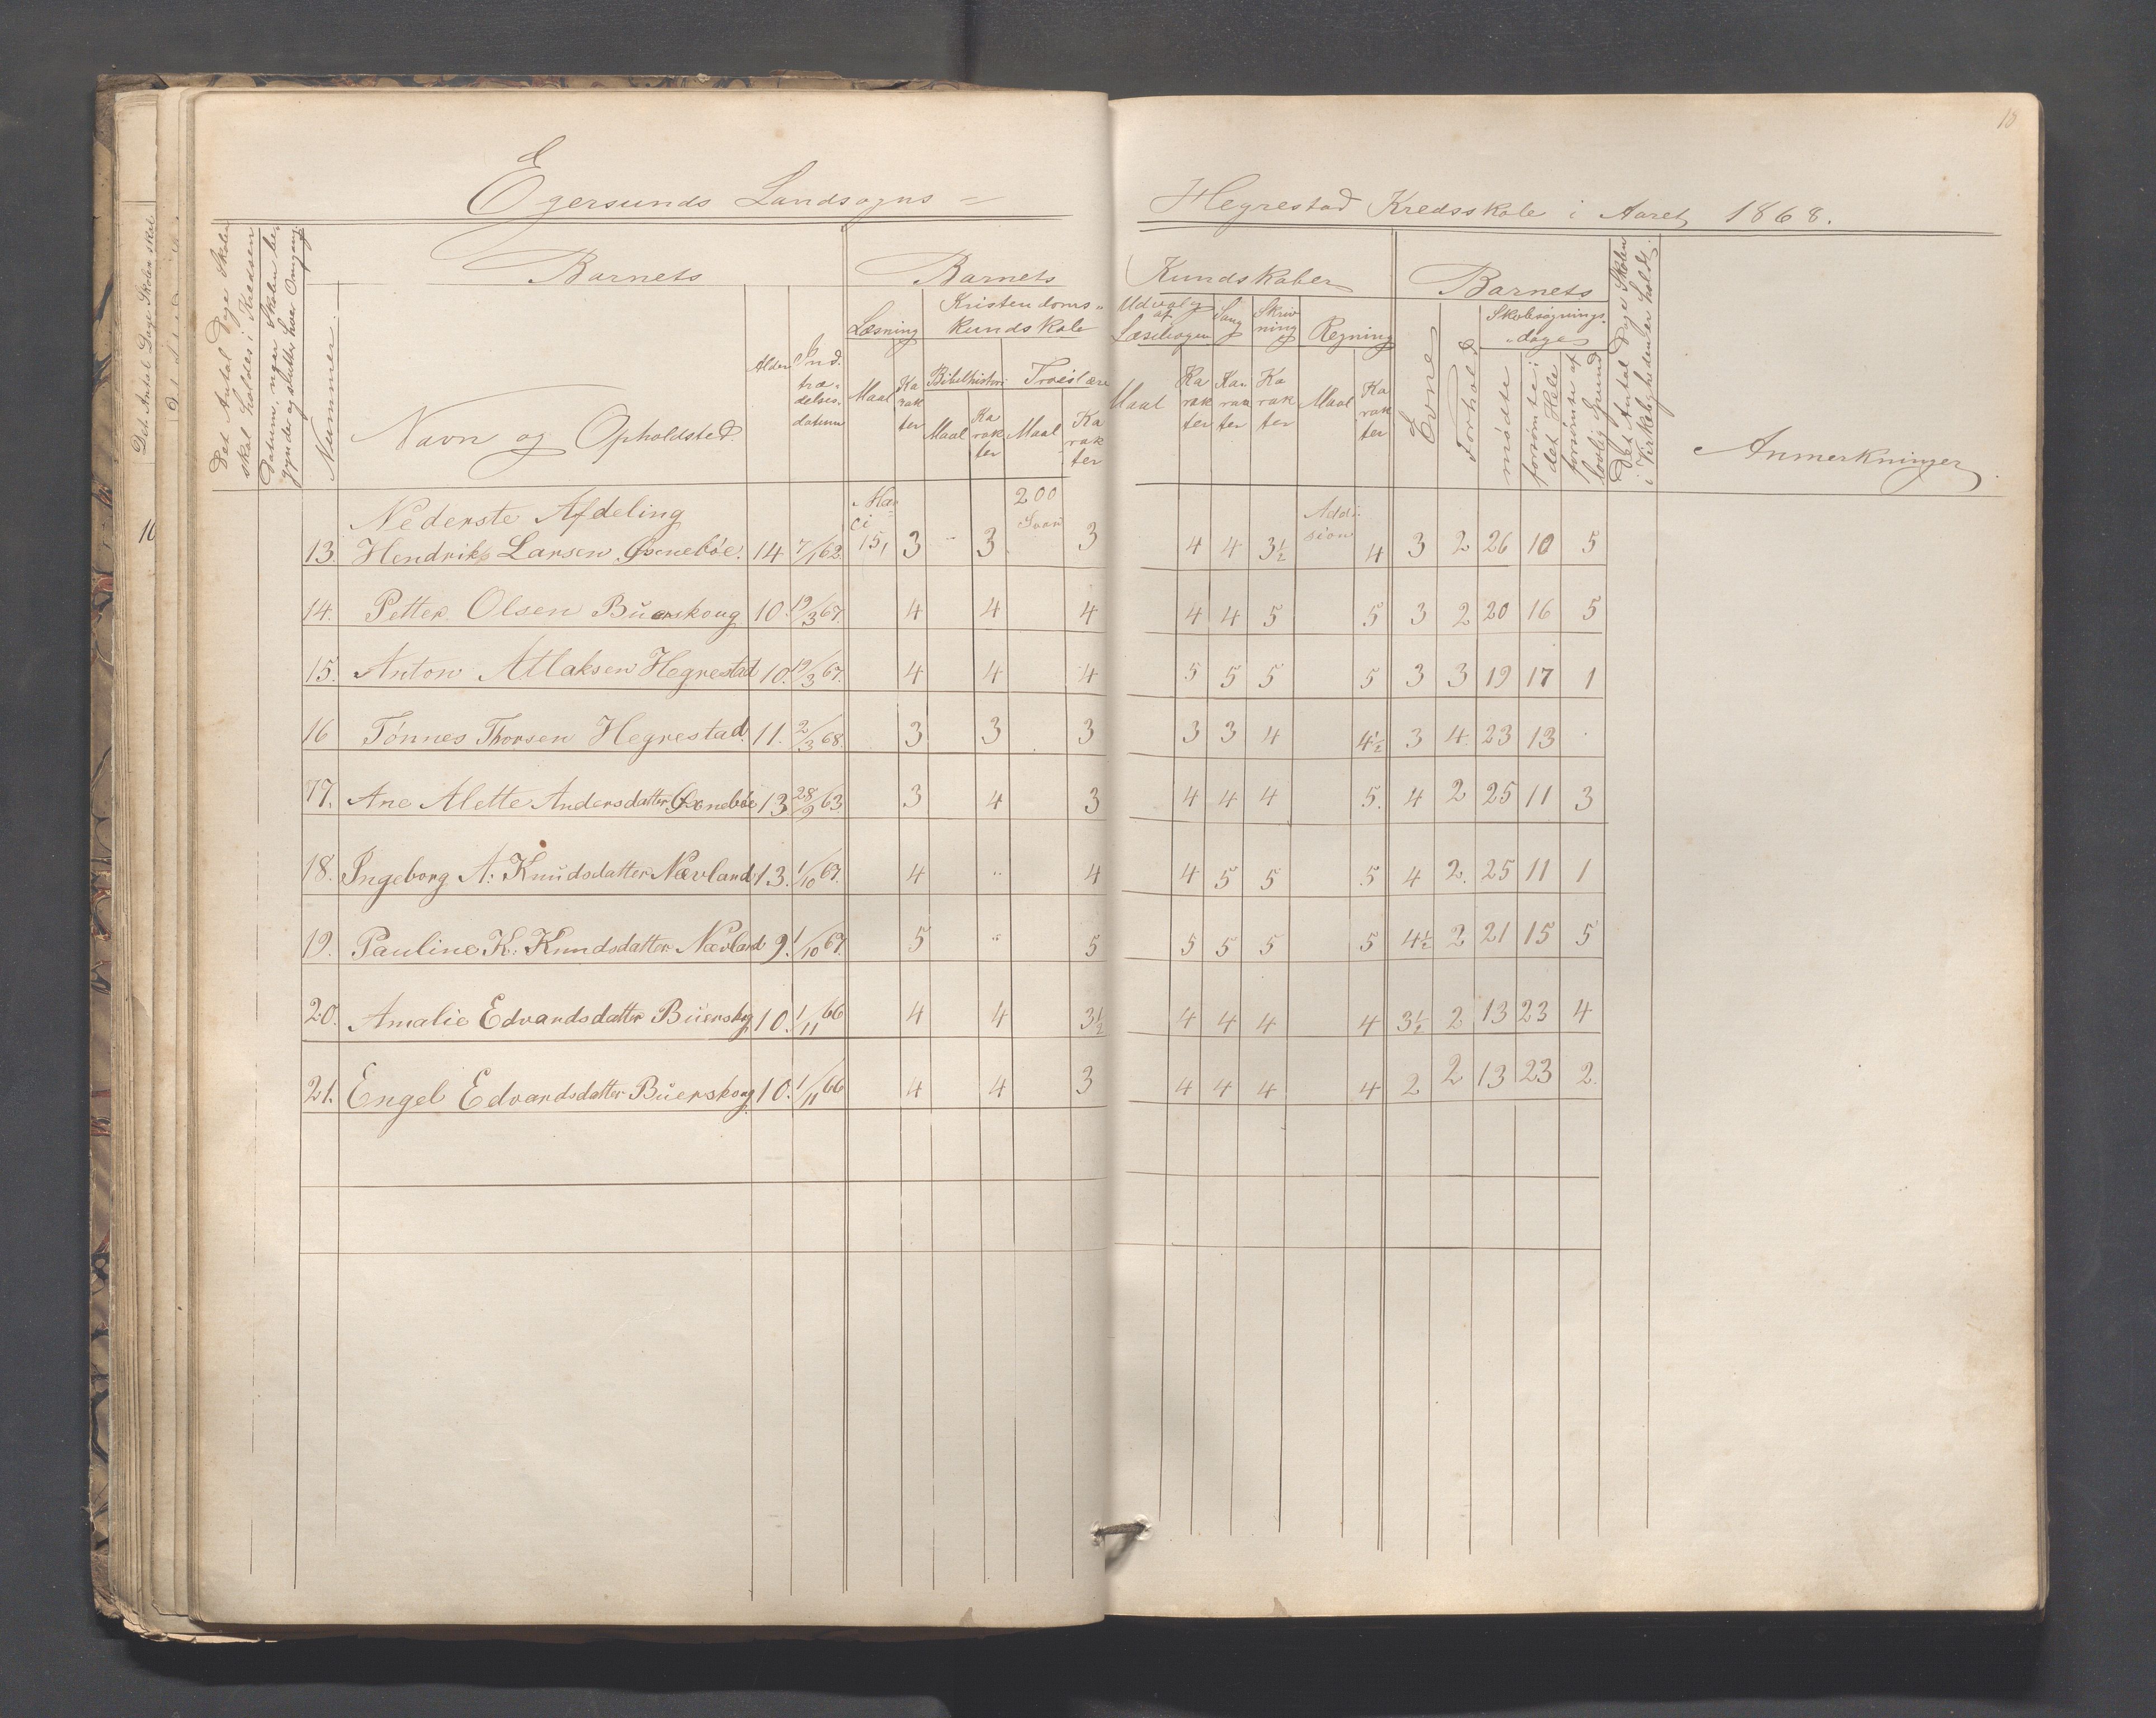 18
Egersunds Landsogns =
Hegrestad Kredsskole i Aaret 1868.
Det Antal Dage Skolen skal holdes i Kredsen
Datum, naar Skolen begynder og slutter hver Omgang
Nummer.
Barnets
Navn og Opholdsted.
Alder
Indtrædelsesdatum
Barnets
Læsning
Maal
Karakter
Kristendoms=
kundskab
Bibelhistorie
Maal
Karakter
Troeslære
Maal
Karakter
Kundskaber
Udvalg af Læsebogen
Maal
Karakter
Sang
Karakter
Skrivning
Karakter
Regning
Maal
Karakter
Barnets
Evne
Forhold
Skolesøgnings-
dage
mødte
forsømte i det Hele
forsømte af lovlig Grund
Det Antal Dage Skolen i Virkeligheden er holdt.
Anmerkninger
Nederste Afdeling
13. Hendrik Larsen Øxnebøe. 14 7/1 62. 15, 3 " 3 200 3 4 4 3½ Addision 4 3 2 26 10 5
14. Petter Olsen Buerskoug 10. 19/3 67. 4 4 4 4 4 5 5 3 2 20 16 5
15. Anton Atlaksen Hegrestad 10. 19/3 67. 4 4 4 5 5 5 5 3 3 19 17 1
16 Tønnes Thorsen Hegrestad. 11. 2/3 68. 3 3 3 3 3 4 4½ 3 4 23 13 .
17. Ane Alette Andersdatter Øxnebøe 13 28/9 63. 3 4 3 4 4 4 5. 4 2 25 11 3
18. Ingeborg A: Knudsdatter Nævland 13. 1/10 67. 4 " 4 4 5 5 5 4 2. 25 11 1
19. Pauline K: Knudsdatter Nævland 9. 1/10 67. 5 " 5 5 5 5 5 4½ 2 21 15 5
20. Amalie Edvardsdatter Buerskog 10. 1/11 66 4 4 3½ 4 4 4 4 3½ 2 13 23 4
21. Engel Edvardsdatter Buerskoug 10. 1/11 66 4 4 3 4 4 4 4 2 2 13 23 2.